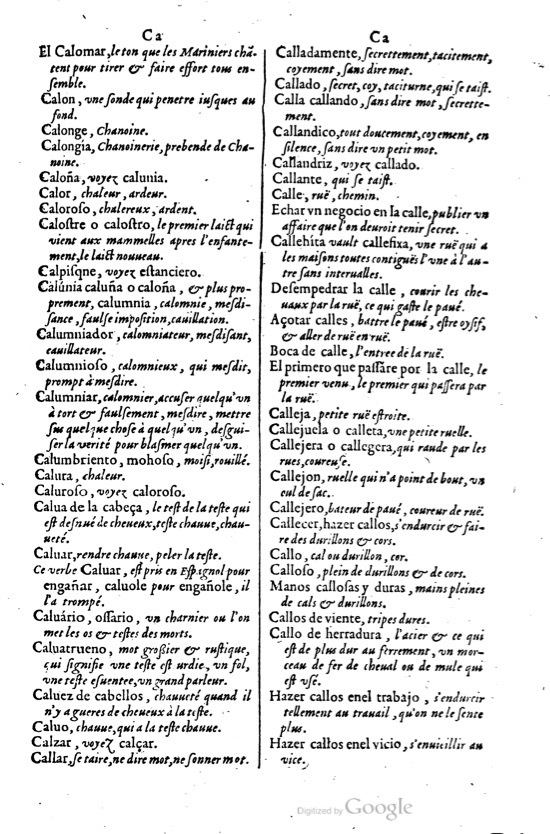 Ca
El Calomar, le ton que les Mariniers chã-
tent pour tirer & faire effort tous en-
semble.
Calon, vne sonde qui penetre iusques au
fond.
Calonge, Chanoine.
Calongia, Chanoinerie, prebende de Cha-
noine.
Caloña, voyez calunia.
Calor, chaleur, ardeur.
Caloroso, chalereux, ardent.
Calostre o calostro, le premier laict qui
vient aux mammelles apres l'enfante-
ment, le laict nouueau.
Calpisque, voyez estanciero.
Calúnia caluña o caloña, & plus pro-
prement, calumnia, calomnie, mesdi-
sance, faulse imposition, cauillation.
Calumniador, calomniateur, mesdisant,
cauillateur.
Calumnioso, calomnieux, qui mesdit,
prompt à mesdire.
Calumniar, calomnier, accuser quelqu'vn
à tort & faulsement, mesdire, mettre
sus quelque chose à quelqu'vn, desgui-
ser la verité pour blasmer quelqu'vn.
Calumbriento, mohoso, moisi, rouillé.
Calura, chaleur.
Caluroso, voyez caloroso.
Calua de la cabeça, le test de la teste qui
est desnué de cheueux, teste chauue, chau-
ueté.
Caluar, rendre chauue, peler la teste.
Ce verbe Caluar, est pris en Espagnol pour
engañar, caluole pour engañole, il
l'a trompé.
Caluário, ossario, vn charnier ou l'on
met les os & testes des morts.
Caluatrueno, mot grossier & rustique,
qui signifie vne teste est urdie, vn fol,
vne teste esuentee, vn grand parleur.
Caluez de cabellos, chauueté quand il
n'y a gueres de cheueux à la teste.
Caluo, chauue, qui a la teste chauue.
Calzar, voyez calçar.
Callar, se taire, ne dire mot, ne sonner mot.
Ca
Calladamente, secrettement, tacitement,
coyement, sans dire mot.
Callado, secret, coy, taciturne, qui se taist.
Calla callando, sans dire mot, secrette-
ment.
Callandico, tout doucement, coyement, en
silence, sans dire vn petit mot.
Callandriz, voyez callado.
Callante, qui se taist.
Calle, ruë, chemin.
Echar vn negocio en la calle, publier vn
affaire que l'on deuroit tenir secret.
Callehita vault callefixa, vne ruë qui a
les maisons toutes contiguës l'vne à l'au-
tre sans interualles.
Desempedrar la calle, courir les che-
uaux par la ruë, ce qui gaste le paué.
Açotar calles, battre le paué, estre oysif,
& aller de ruë en ruë.
Boca de calle, l'entree de la ruë.
El primero que passàre por la calle, le
premier venu, le premier qui passera par
la ruë.
Calleja, petite ruë estroite.
Callejuela o calleta, vne petite ruelle.
Callejera o callegera, qui raude par les
rues, coureuse.
Callejon, ruelle qui n'a point de bout, vn
cul de sac.
Callejero, bateur de paué, coureur de ruë.
Callecer, hazer callos, s'endurcir & fai-
re des durillons & cors.
Callo, cal ou durillon, cor.
Calloso, plein de durillons & de cors.
Manos callosas y duras, mains pleines
de cals & durillons.
Callos de viente, tripes dures.
Callo de herradura, l'acier & ce qui
est de plus dur au ferrement, vn mor-
ceau de fer de cheual ou de mule qui
est vsé.
Hazer callos enel trabajo, s'endurcir
tellement au trauail, qu'on ne le sente
plus.
Hazer callos enel vicio, s'enuieillir au
vice.
Digitized by Google